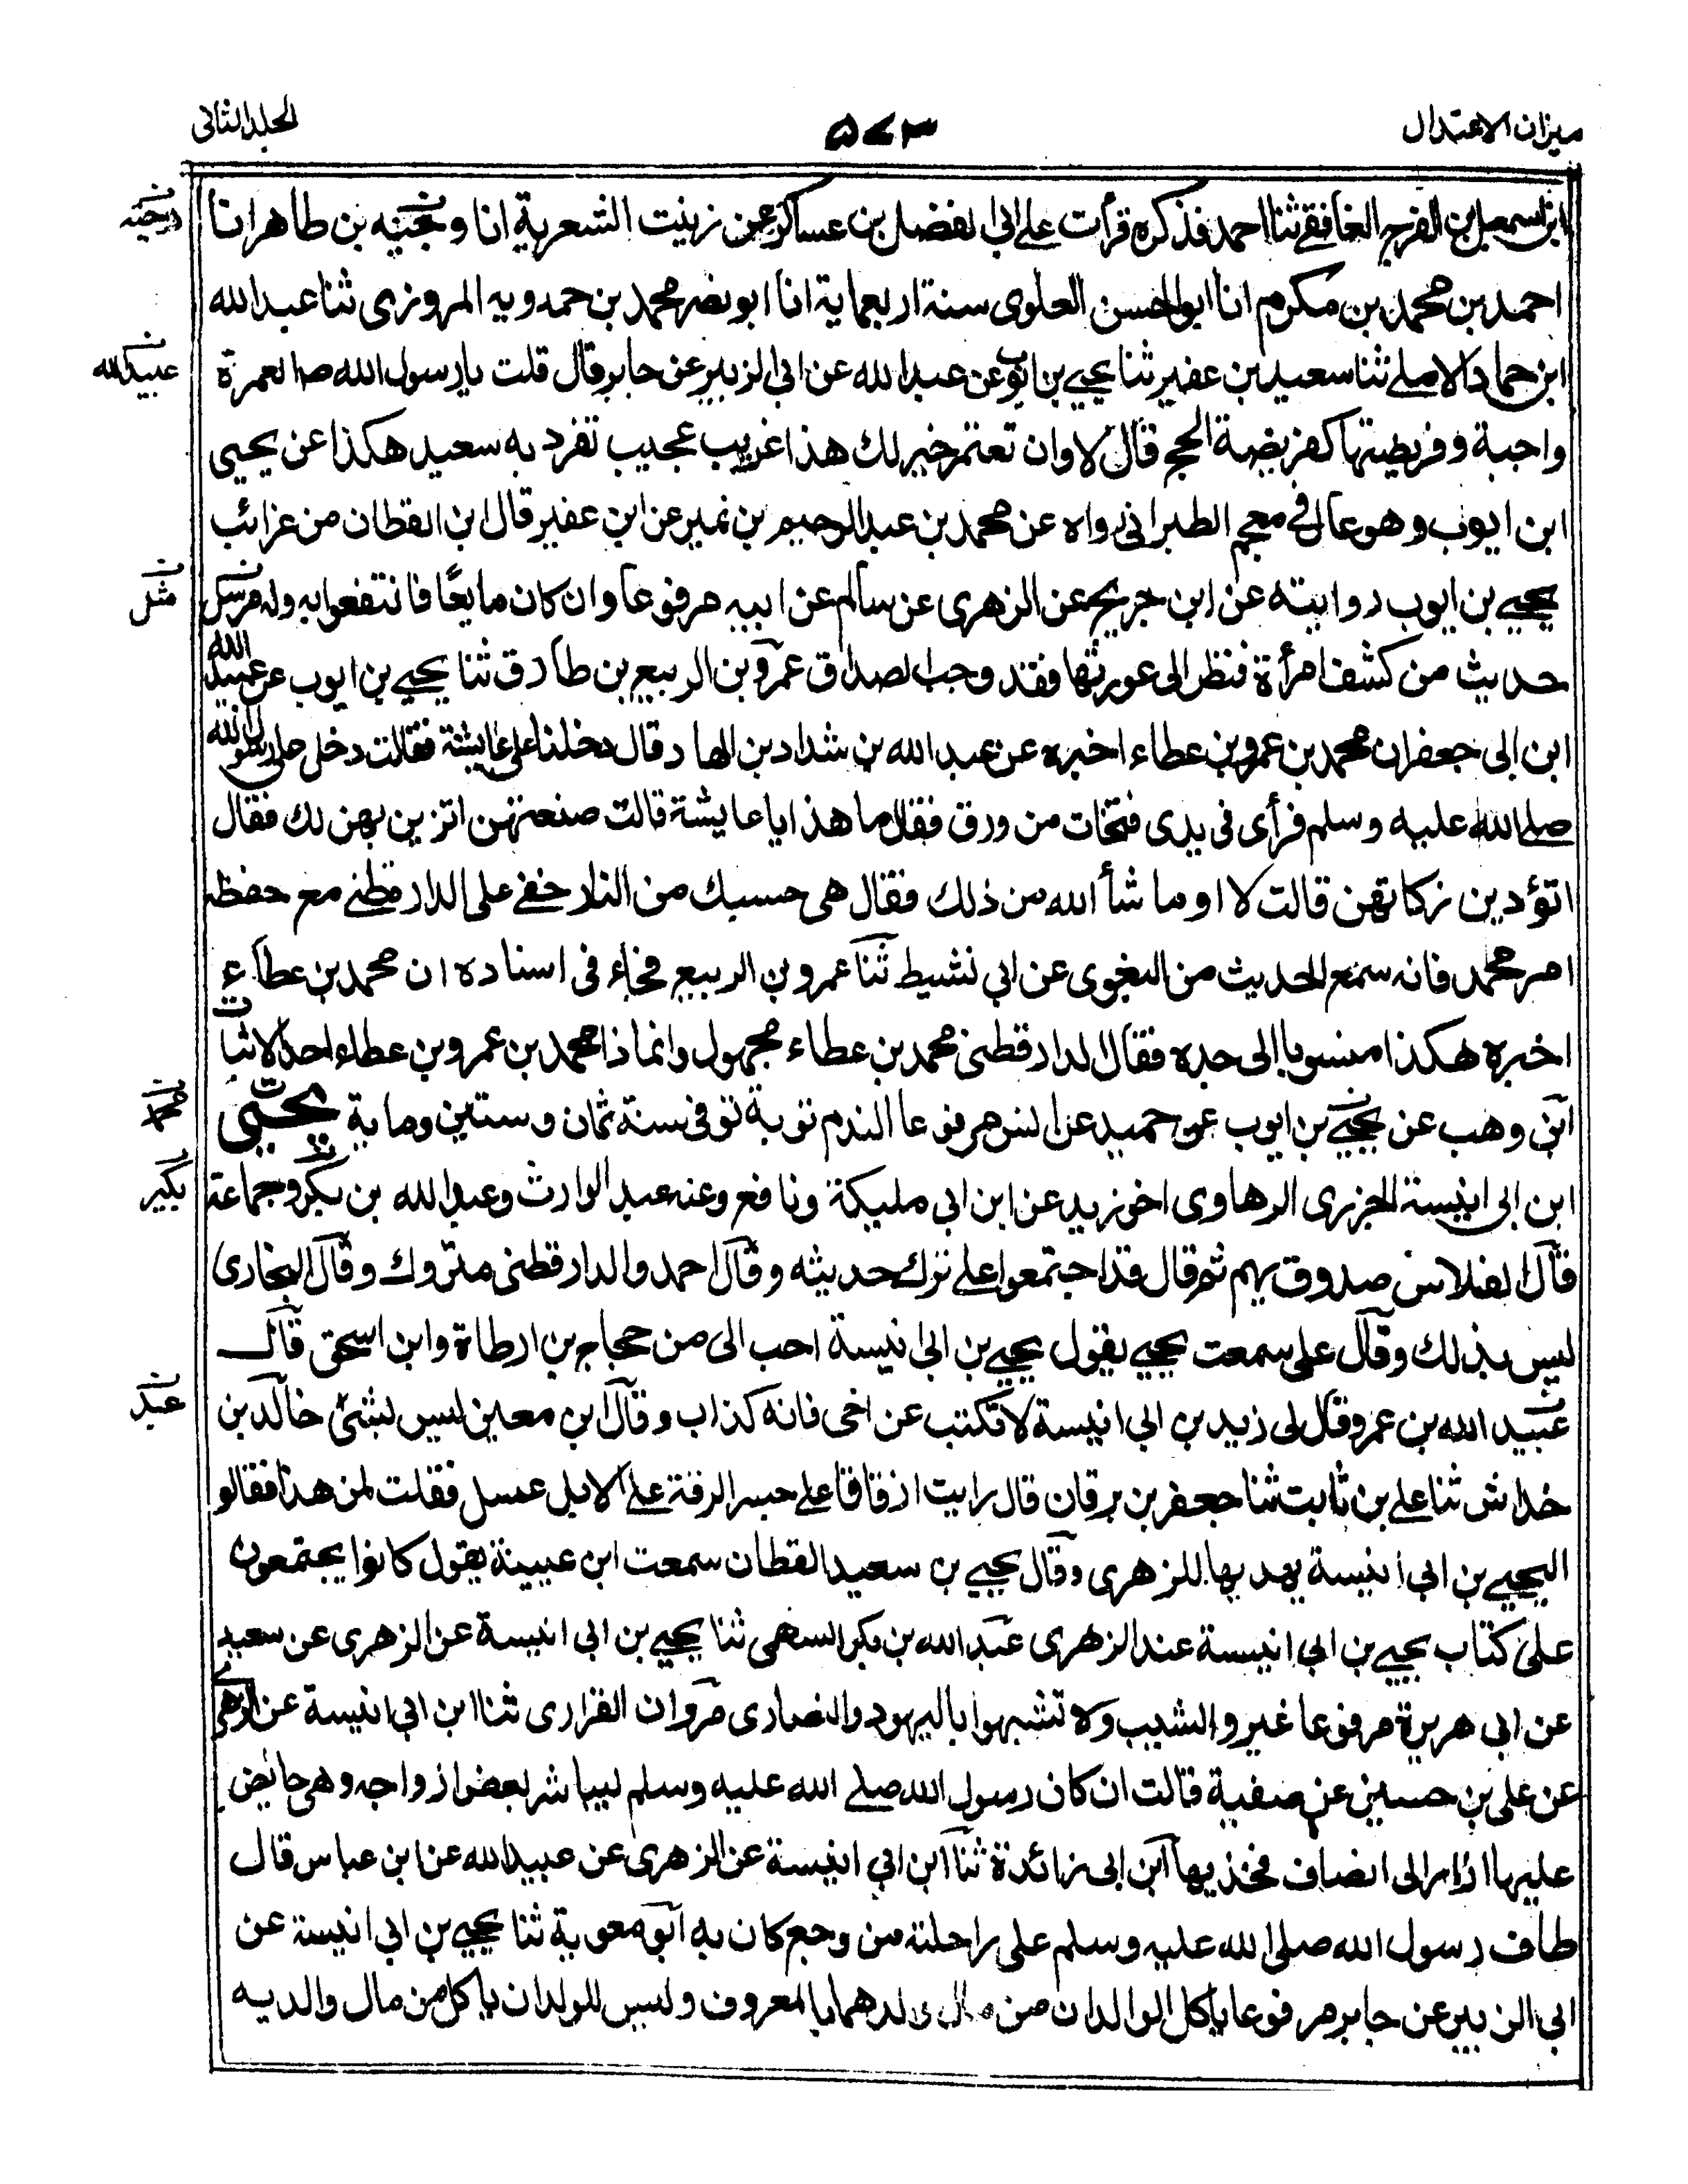 ميزان الاعتدال
٥٧٣
الجلد الثانى
ابن اسمعيل بن الفرج الغافقے ثنا احمد فذكره قرأت على ابى الفضل بن عساكر عن زينت الشعرية انا وجيه بن طاهر انا
احمد بن محمد بن مكرم انا ابوالحسن العلوى سنة اربعماية انا ابو نصر محمد بن حمدويه المروزى ثنا عبد الله
ابن حماد الاملے ثنا سعيد بن عفير ثنا يحيے بن ايوب عن عبد الله عن ابى الزبير عن جابر قال قلت يارسول الله صـ العمرة
عبيد الله
واجبة وفريضتها كفريضة الحج قال لا وان تعتمر خير لك هذا غريب عجيب تفرد به سعيد هكذا عن يحيى
ابن ايوب وهو عال فى معجم الطبرانى رواه عن محمد بن عبد الرحيم بن نمير عن ابن عفير قال ابن القطان من غرائب
يحيے بن ايوب روايته عن ابن جريج عن الزهرى عن سالم عن ابيه مرفوعا وان كان مايعًا فانتفعوا به وله مرسل
مثل
حديث من كشف امرأة فنظر الى عورتها فقد وجب الصداق عمرو بن الربيع بن طارق ثنا يحيے بن ايوب عن عبيد الله
ابن ابى جعفر ان محمد بن عمرو بن عطاء اخبره عن عبد الله بن شداد بن الهاد قال دخلنا على عايشة فقالت دخل على رسول الله
صلے الله عليه وسلم فرأى فى يدى فتخات من ورق فقال ما هذا ياعايشة قالت صنعتهن اتزين بهن لك فقال
اتؤدين زكاتهن قالت لا او ما شأ الله من ذلك فقال هى حسبك من النار خفے على الدارقطنے مع حفظه
امر محمد فانه سمع الحديث من البغوى عن ابى نشيط ثنا عمرو بن الربيع فجاء فى اسناده ان محمد بن عطاء
اخبره هكذا منسوبا الى جده فقال الدارقطنى محمد بن عطاء مجهول وانما ذا محمد بن عمرو بن عطاء احد الاثبات
ابن وهب عن يحيے بن ايوب عن حميد عن انس مرفوعا الندم توبة توفى سنة ثمان وستين وماية يحيى
محمد
ابن ابى انيسة الجزرى الرهاوى اخو زيد عن ابن ابى مليكة ونافع وعنه عبد الوارث وعبد الله بن بكر وجماعة
بكير
قال الفلاس صدوق يهم ثم قال قد اجتمعوا على ترك حديثه وقال احمد والدارقطنى متروك وقال البخارى
ليس بذلك وقال على سمعت يحيے يقول يحيے بن ابى انيسة احب الى من حجاج بن ارطاة وابن اسحق قال
عبيد الله بن عمرو قال لى زيد بن ابى انيسة لا تكتب عن اخى فانه كذاب وقال ابن معين ليس بشئ خالد بن
عبد
خداش ثنا على بن ثابت ثنا جعفر بن برقان قال رايت ازقاقا على جسر الرقة على الابل عسل فقلت لمن هذا فقالو
اليحيے بن ابى انيسة يهد بها للزهرى وقال يحيے بن سعيد القطان سمعت ابن عيينة يقول كانوا يجتمعون
على كتاب يحيے بن ابى انيسة عند الزهرى عبد الله بن بكر السهمى ثنا يحيے بن ابى انيسة عن الزهرى عن سعيد
عن ابى هريرة مرفوعا غيروا الشيب ولا تشبهوا باليهود والنصارى مروان الفزارى ثنا ابن ابى انيسة عن الزهرى
عن على بن حسين عن صفية قالت ان كان رسول الله صلے الله عليه وسلم ليباشر بعض ازواجه وهى حايض
عليها ازار الى انصاف فخذيها ابن ابى زائدة ثنا ابن ابى انيسة عن الزهرى عن عبيد الله عن ابن عباس قال
طاف رسول الله صلى الله عليه وسلم على راحلته من وجع كان به ابو معوية ثنا يحيے بن ابى انيسة عن
ابى الزبير عن جابر مرفوعا ياكل الوالدان من مال ولدهما بالمعروف وليس للولد ان ياكل من مال والديه